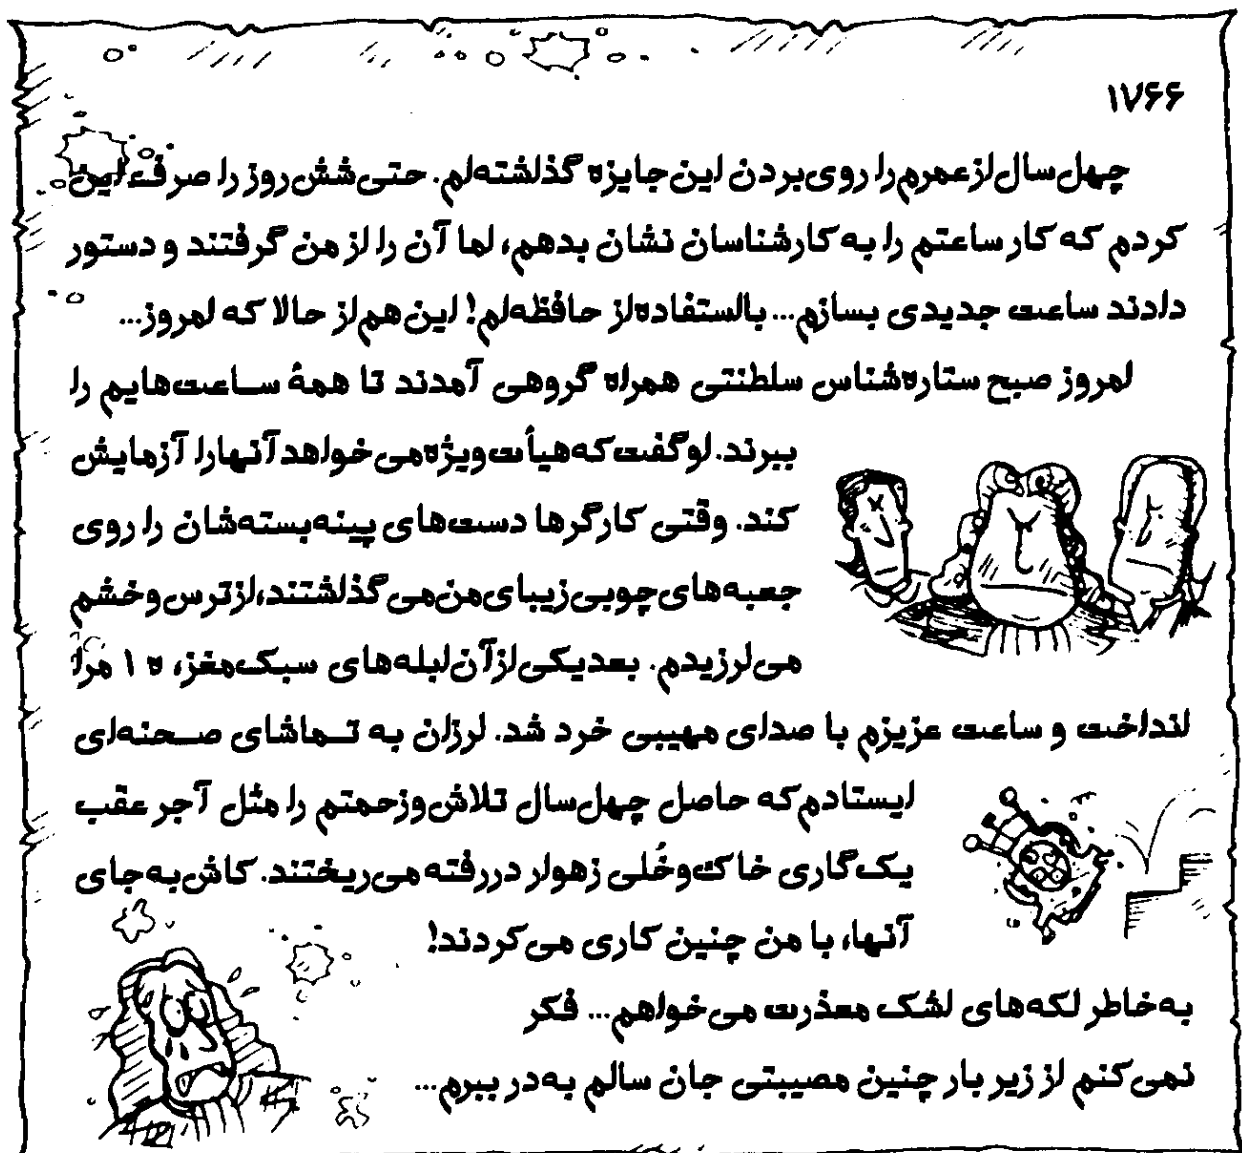 ۱۷۶۶
چهل سال از عمرم را روی بردن این جایزه گذاشته‌ام. حتی شش روز را صرف این
کردم که کار ساعتم را به کارشناسان نشان بدهم، اما آن را از من گرفتند و دستور
دادند ساعت جدیدی بسازم... با استفاده از حافظه‌ام! این هم از حالا که امروز...
امروز صبح ستاره‌شناس سلطنتی همراه گروهی آمدند تا همهٔ ساعت‌هایم را
ببرند. او گفت که هیأت ویژه می‌خواهد آنها را آزمایش
کند. وقتی کارگرها دست‌های پینه‌بسته‌شان را روی
جعبه‌های چوبی زیبای من می‌گذاشتند، از ترس و خشم
می‌لرزیدم. بعد یکی از آن ابله‌های سبک‌مغز، ه ۱ مرا
انداخت و ساعت عزیزم با صدای مهیبی خرد شد. لرزان به تماشای صحنه‌ای
ایستادم که حاصل چهل سال تلاش و زحمتم را مثل آجر عقب
یک گاری خاک‌وخُلی زهوار دررفته می‌ریختند. کاش به جای
آنها، با من چنین کاری می‌کردند!
به‌خاطر لکه‌های اشک معذرت می‌خواهم... فکر
نمی‌کنم از زیر بار چنین مصیبتی جان سالم به‌در ببرم...